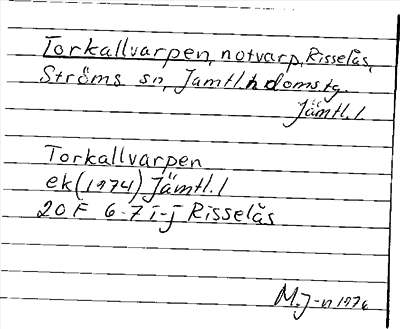 Torkallvarpen, notvarp, Risselås,
Ströms sn, Jämtl. n domstg.
Jämtl. l
Torkallvarpen
ek (1974) Jämtl. l
20 F 6-7 i-j Risselås
M.J-n 1976